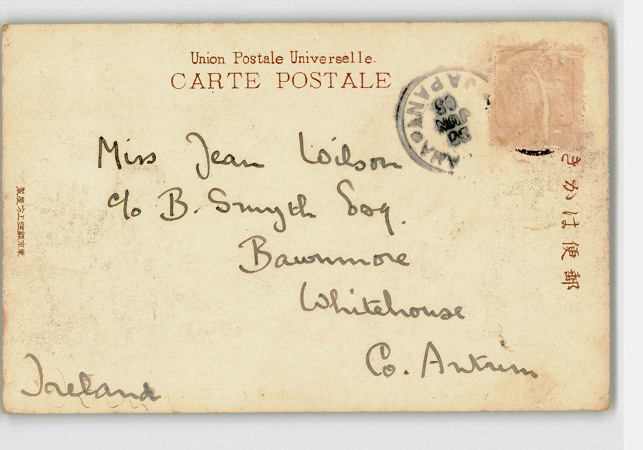 Union Postale Universelle.
CARTE POSTALE
JAPAN
JUN
05
Miss Jean Wilson
c/o B. Smyth Esq.
Bawnmore
Whitehouse
Co. Antrim
Ireland
きかは便郵